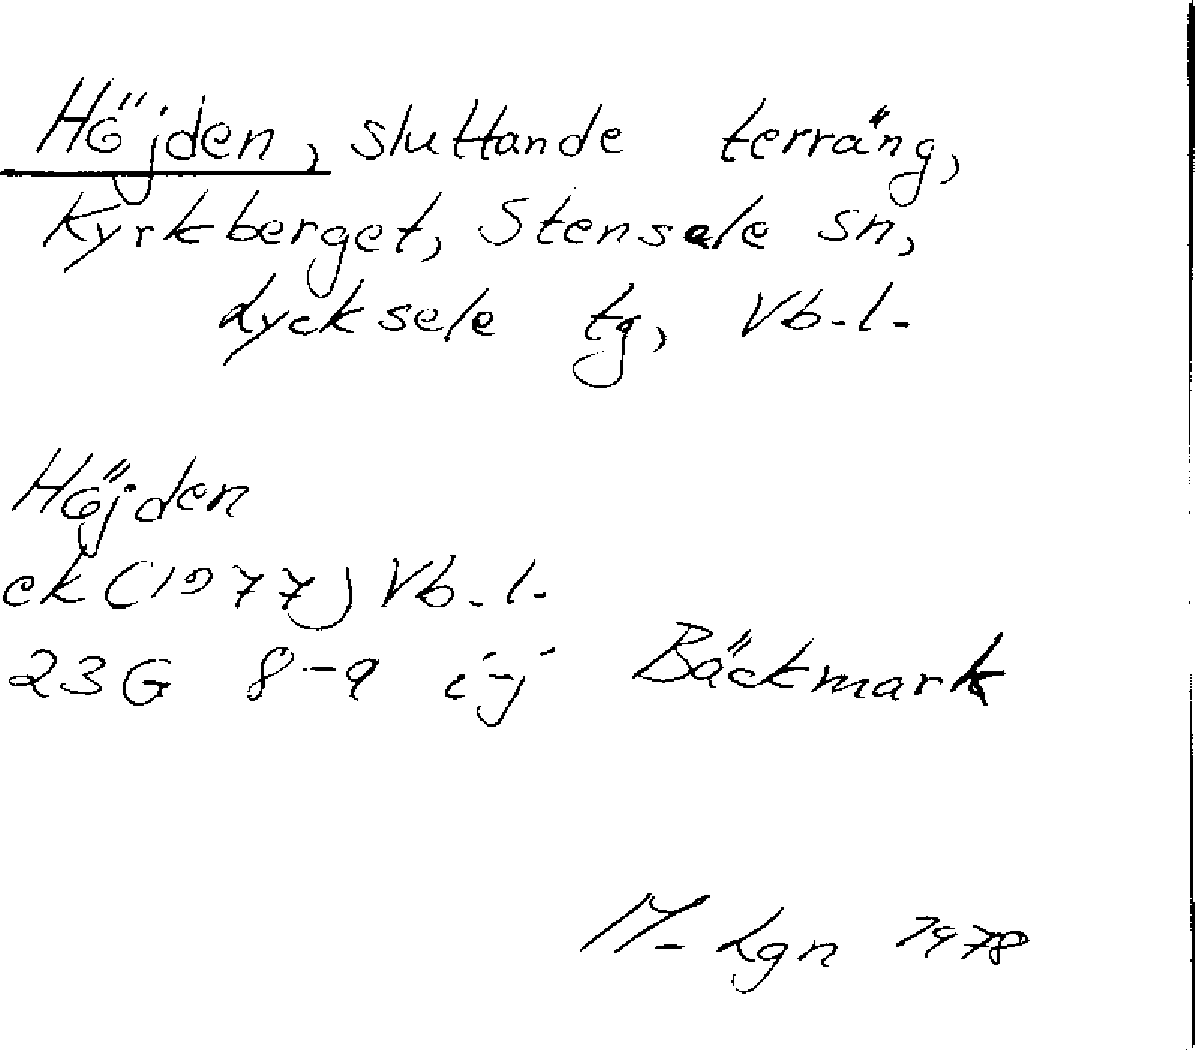 Höjden, sluttande terräng,
Kyrkberget, Stensele sn,
Lycksele tg, Vb. l.
Höjden
ek (1977) Vb. l.
23G 8-9 i-j Bäckmark
M. Lgn 1978